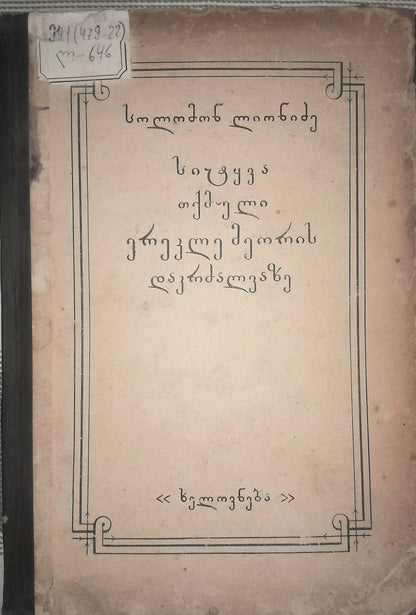 ЭЧ1(479.22)
ლ-646
სოლომონ ლიონიძე
სიტყვა
თქმული
ერეკლე მეორის
დაკრძალვაზე
« ხელოვნება »